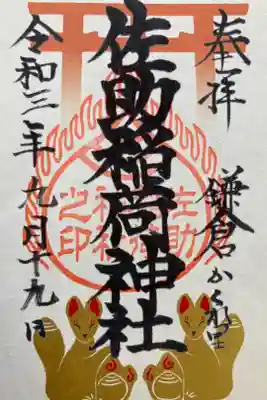 奉拝
鎌倉かくれ里
佐助稲荷神社
令和三年九月十九日
佐助
神社
之印